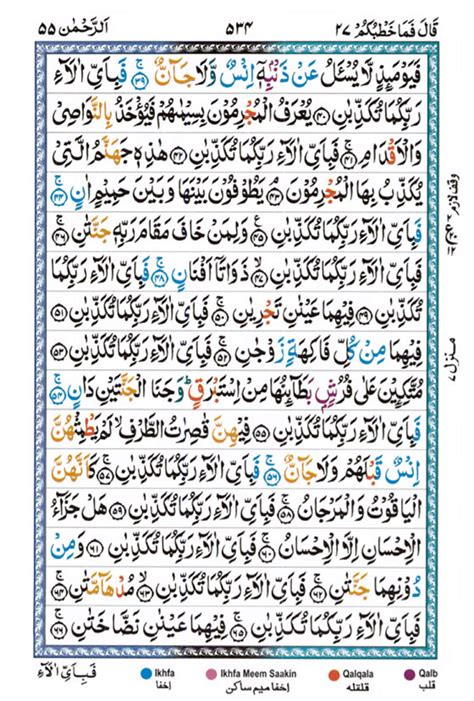 اَلرَّحْمٰن ۵۵ ۵۳۴ قَالَ فَمَا خَطْبُكُمْ ۲۷
فَيَوْمَىِٕذٍ لَّا يُسْـَٔلُ عَنْ ذَنْۢبِهٖۤ اِنْسٌ وَّلَا جَآنٌّ ۚ‏﴿۳۹﴾ فَبِاَيِّ اٰلَآءِ
رَبِّكُمَا تُكَذِّبٰنِ ﴿۴۰﴾ يُعْرَفُ الْمُجْرِمُوْنَ بِسِيْمٰهُمْ فَيُؤْخَذُ بِالنَّوَاصِيْ
وَالْاَقْدَامِ ۚ‏﴿۴۱﴾ فَبِاَيِّ اٰلَآءِ رَبِّكُمَا تُكَذِّبٰنِ ﴿۴۲﴾ هٰذِهٖ جَهَنَّمُ الَّتِيْ
يُكَذِّبُ بِهَا الْمُجْرِمُوْنَ ۘ‏﴿۴۳﴾ يَطُوْفُوْنَ بَيْنَهَا وَبَيْنَ حَمِيْمٍ اٰنٍ ۚ‏﴿۴۴﴾
فَبِاَيِّ اٰلَآءِ رَبِّكُمَا تُكَذِّبٰنِ ﴿۴۵﴾ وَلِمَنْ خَافَ مَقَامَ رَبِّهٖ جَنَّتٰنِ ۚ‏﴿۴۶﴾
فَبِاَيِّ اٰلَآءِ رَبِّكُمَا تُكَذِّبٰنِ ۙ‏﴿۴۷﴾ ذَوَاتَاۤ اَفْنَانٍ ۚ‏﴿۴۸﴾ فَبِاَيِّ اٰلَآءِ رَبِّكُمَا
تُكَذِّبٰنِ ﴿۴۹﴾ فِيْهِمَا عَيْنٰنِ تَجْرِيٰنِ ۚ‏﴿۵۰﴾ فَبِاَيِّ اٰلَآءِ رَبِّكُمَا تُكَذِّبٰنِ ﴿۵۱﴾
فِيْهِمَا مِنْ كُلِّ فَاكِهَةٍ زَوْجٰنِ ۚ‏﴿۵۲﴾ فَبِاَيِّ اٰلَآءِ رَبِّكُمَا تُكَذِّبٰنِ ﴿۵۳﴾
مُتَّكِـِٕيْنَ عَلٰى فُرُشٍۭ بَطَآىِٕنُهَا مِنْ اِسْتَبْرَقٍ ؕ وَجَنَا الْجَنَّتَيْنِ دَانٍ ۚ‏﴿۵۴﴾
فَبِاَيِّ اٰلَآءِ رَبِّكُمَا تُكَذِّبٰنِ ﴿۵۵﴾ فِيْهِنَّ قٰصِرٰتُ الطَّرْفِ ۙ لَمْ يَطْمِثْهُنَّ
اِنْسٌ قَبْلَهُمْ وَلَا جَآنٌّ ۚ‏﴿۵۶﴾ فَبِاَيِّ اٰلَآءِ رَبِّكُمَا تُكَذِّبٰنِ ۚ‏﴿۵۷﴾ كَاَنَّهُنَّ
الْيَاقُوْتُ وَالْمَرْجَانُ ۚ‏﴿۵۸﴾ فَبِاَيِّ اٰلَآءِ رَبِّكُمَا تُكَذِّبٰنِ ﴿۵۹﴾ هَلْ جَزَآءُ
الْاِحْسَانِ اِلَّا الْاِحْسَانُ ۚ‏﴿۶۰﴾ فَبِاَيِّ اٰلَآءِ رَبِّكُمَا تُكَذِّبٰنِ ﴿۶۱﴾ وَمِنْ
دُوْنِهِمَا جَنَّتٰنِ ۚ‏﴿۶۲﴾ فَبِاَيِّ اٰلَآءِ رَبِّكُمَا تُكَذِّبٰنِ ۙ‏﴿۶۳﴾ مُدْهَآمَّتٰنِ ۚ‏﴿۶۴﴾
فَبِاَيِّ اٰلَآءِ رَبِّكُمَا تُكَذِّبٰنِ ۚ‏﴿۶۵﴾ فِيْهِمَا عَيْنٰنِ نَضَّاخَتٰنِ ۚ‏﴿۶۶﴾
وقف لازم
منزل ۷
فَبِاَيِّ اٰلَآءِ
Ikhfa Ikhfa Meem Saakin Qalqala Qalb
اخفا اخفا میم ساکن قلقله قلب